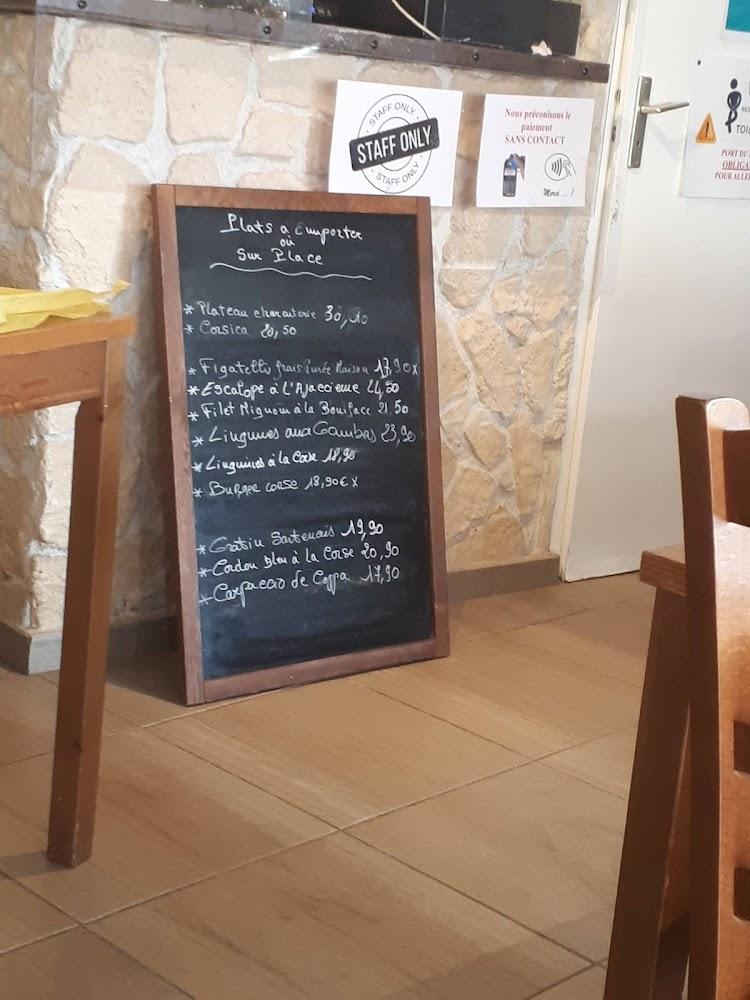 STAFF ONLY
STAFF ONLY
STAFF ONLY
Nous préconisons le
paiement
SANS CONTACT
Merci .... !
TOIL
PORT DU
OBLIGA
POUR ALLE
Plats a Emporter
où
Sur Place
* Plateau charcuterie 30,
* Corsica 20,50
* Figatelli frais Purée Maison 17,90 x
* Escalope à L'Ajaccienne 24,50
* Filet Mignon à la Boniface 21 50
* Linguines aux Gambas 23,90
* Linguines à la Corse 18,90
* Burger corse 18,90€ x
* Gratin Sartenais 19,90
* Cordon Bleu à la Corse 20,90
* Carpacao de Coppa 17,90